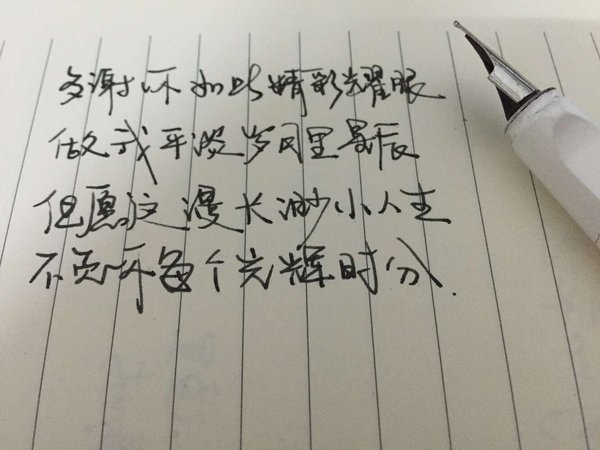 多谢你如此精彩耀眼
做我平淡岁月里星辰
但愿这漫长渺小人生
不负你每个光辉时分.